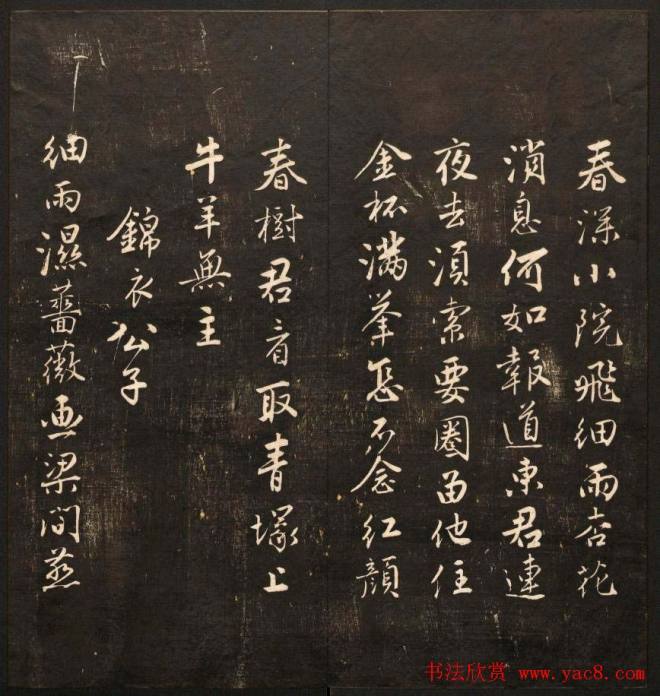 春深小院飛細雨杏花
消息何如報道東君連
夜去須索要圈留他住
金杯滿举怎不念红顏
春樹君看取青塚上
牛羊無主
錦衣公子
細雨濕薔薇画梁間燕
书法欣赏 www.yac8.com